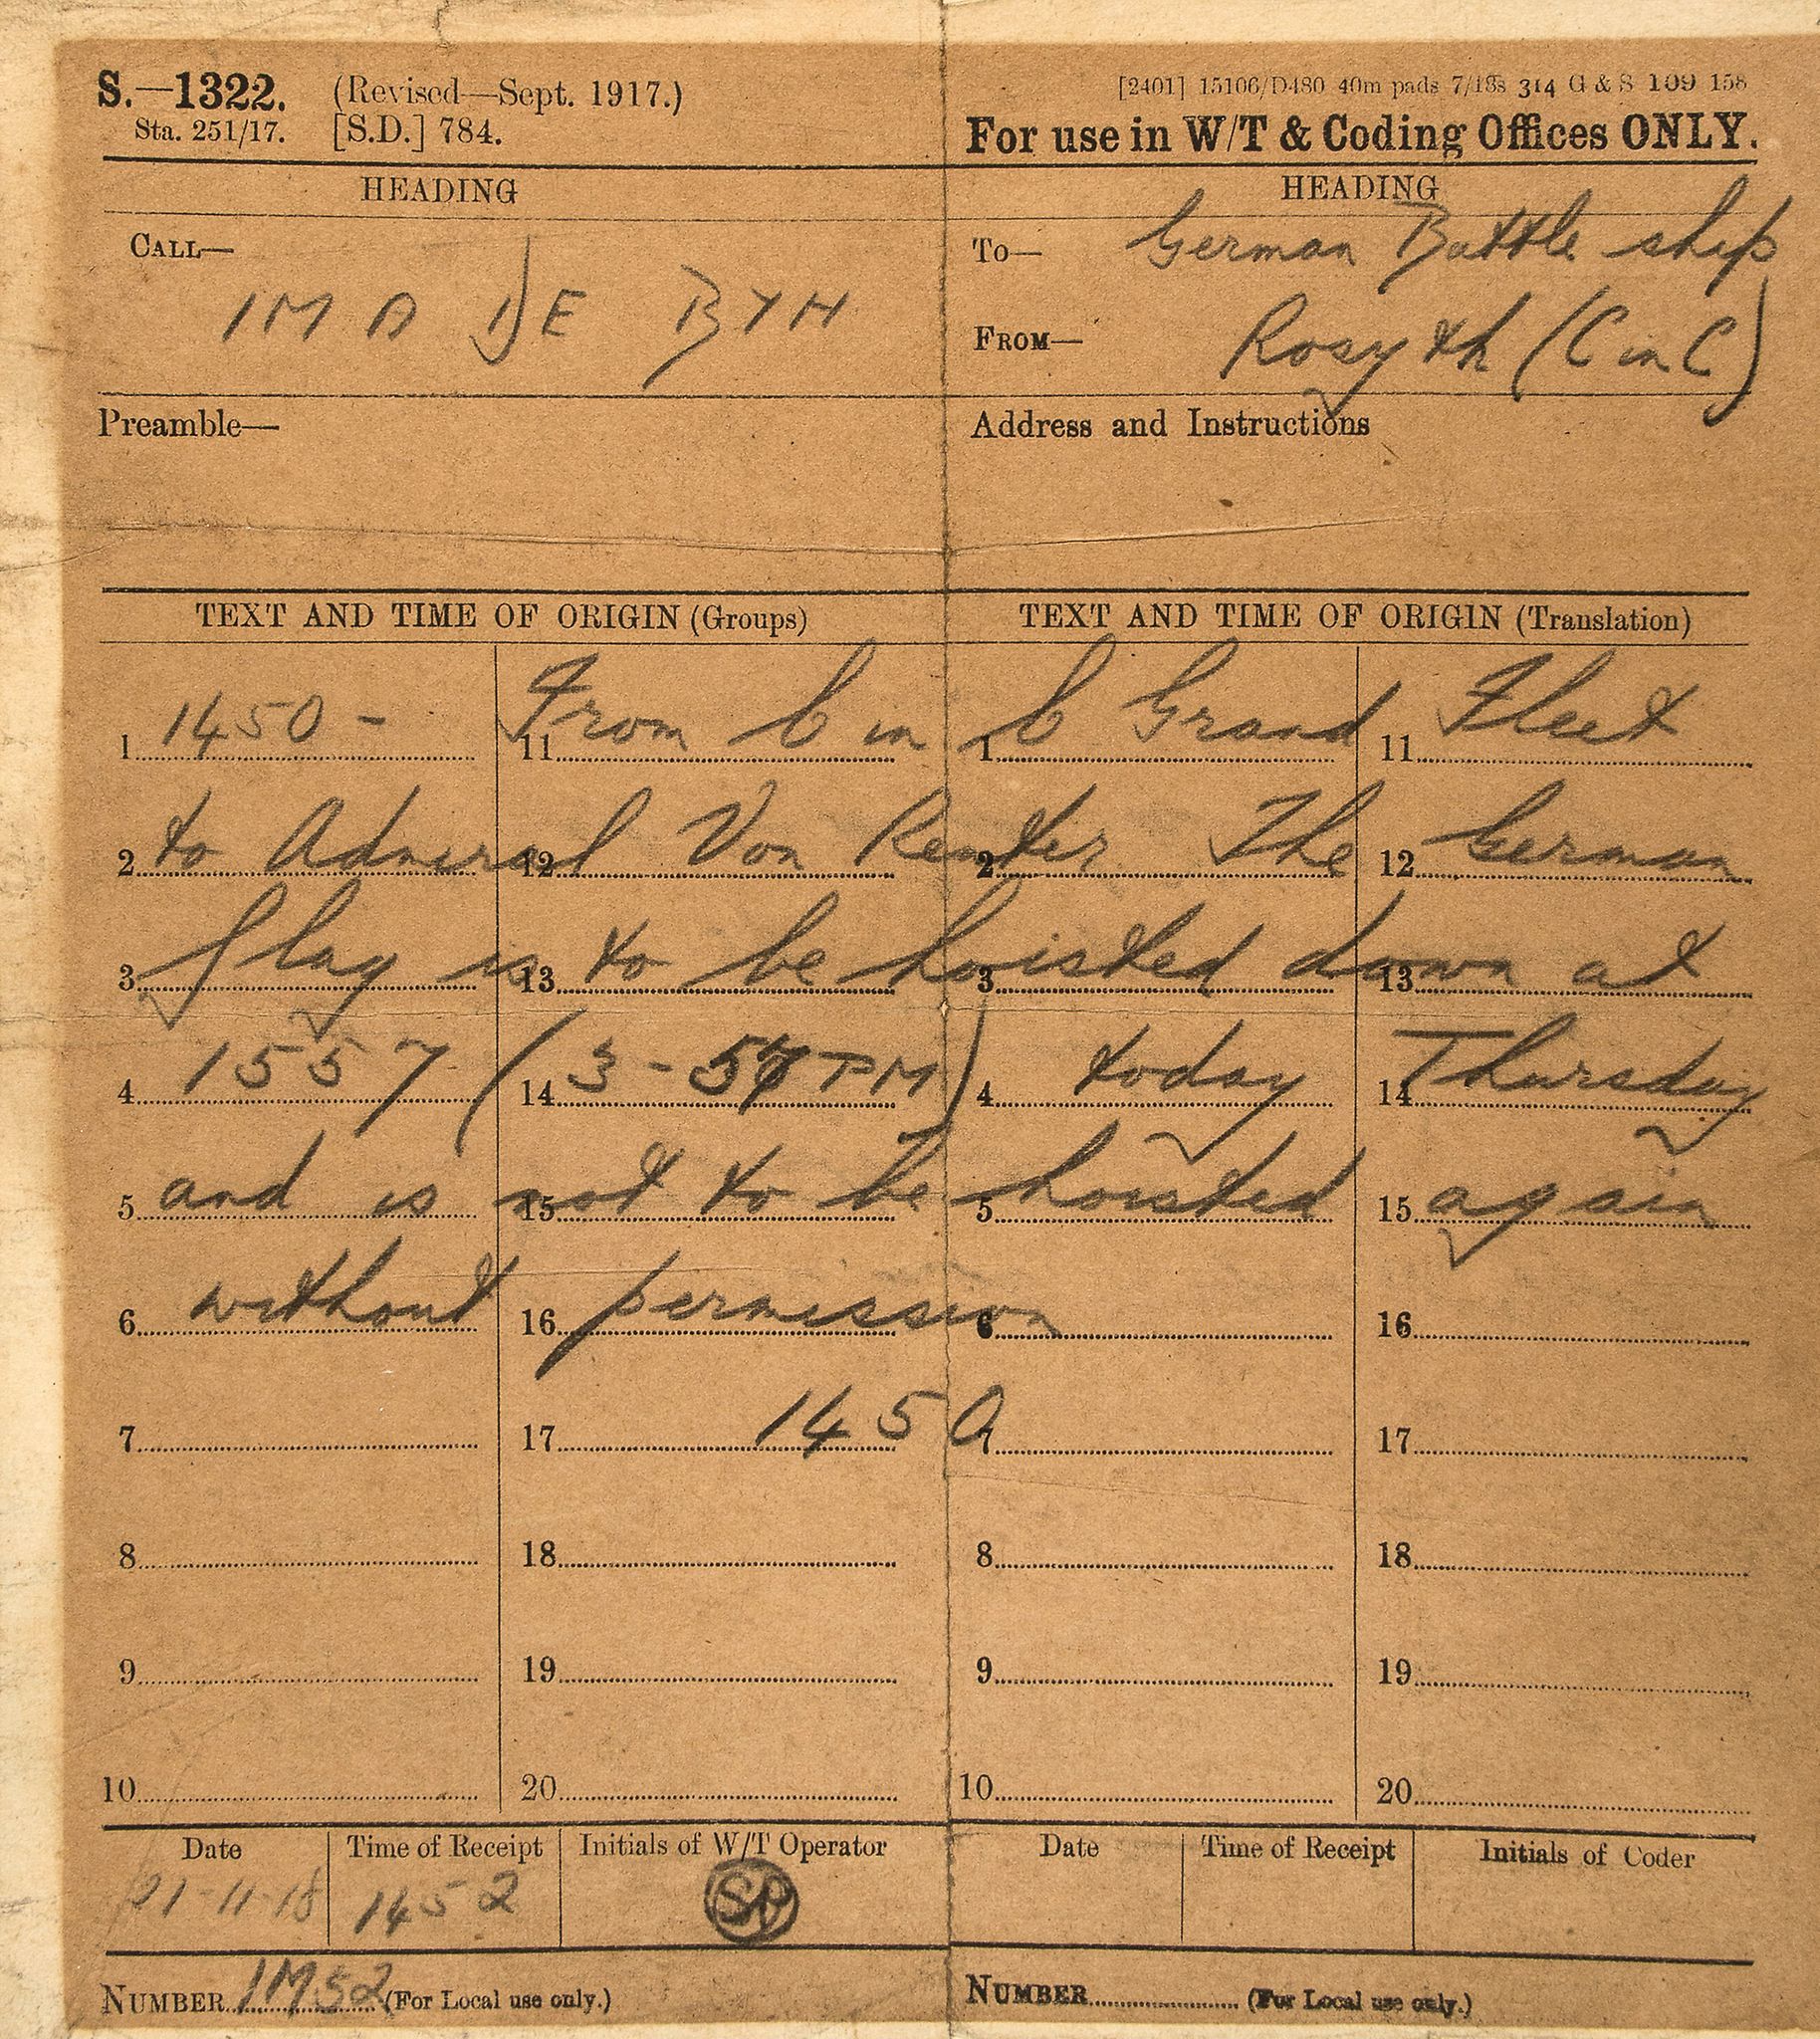 S.—1322. (Revised—Sept. 1917.)
Sta. 251/17. [S.D.] 784.
[2401] 15106/D480 40m pads 7/18s 314 G & S 109 158
For use in W/T & Coding Offices ONLY.
HEADING
HEADING
CALL—
1M A DE BYH
To— German Battle ship
FROM— Rosyth (C in C)
Preamble—
Address and Instructions
TEXT AND TIME OF ORIGIN (Groups)
TEXT AND TIME OF ORIGIN (Translation)
1 1450 - 11 From C in 1 C Grand 11 Fleet
2 to Admiral 12 Von Reuter 2 The 12 German
3 flag is 13 to be hoisted 3 down 13 at
4 1557 (14 3-57 PM) 4 today 14 Thursday
5 and is not 15 to be 5 hoisted 15 again
6 without 16 permission 6 16
7 17 1450 7 17
8 18 8 18
9 19 9 19
10 20 10 20
Date Time of Receipt Initials of W/T Operator
21-11-18 1452 SP
Date Time of Receipt Initials of Coder
NUMBER 1M52 (For Local use only.)
NUMBER (For Local use only.)